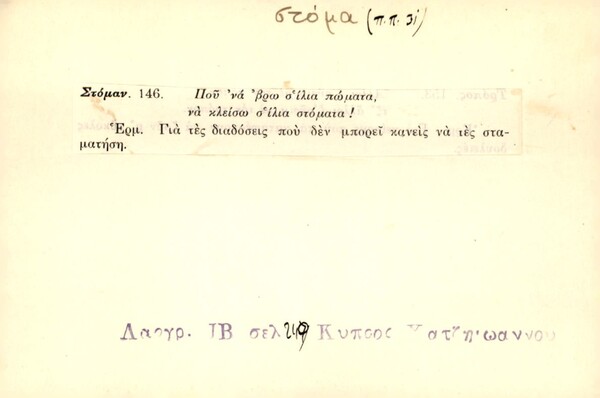 στόμα (π.π. 3)
Στόμαν. 146. Ποῦ ’νά ’βρω σ̌ίλια πώματα,
νὰ κλείσω σ̌ίλια στόματα!
Ἑρμ. Γιὰ τὲς διαδόσεις ποὺ δὲν μπορεῖ κανεὶς νὰ τὲς στα-
ματήση.
Λαογρ. ΙΒ σελ Κυπρος Χατζηιωαννου